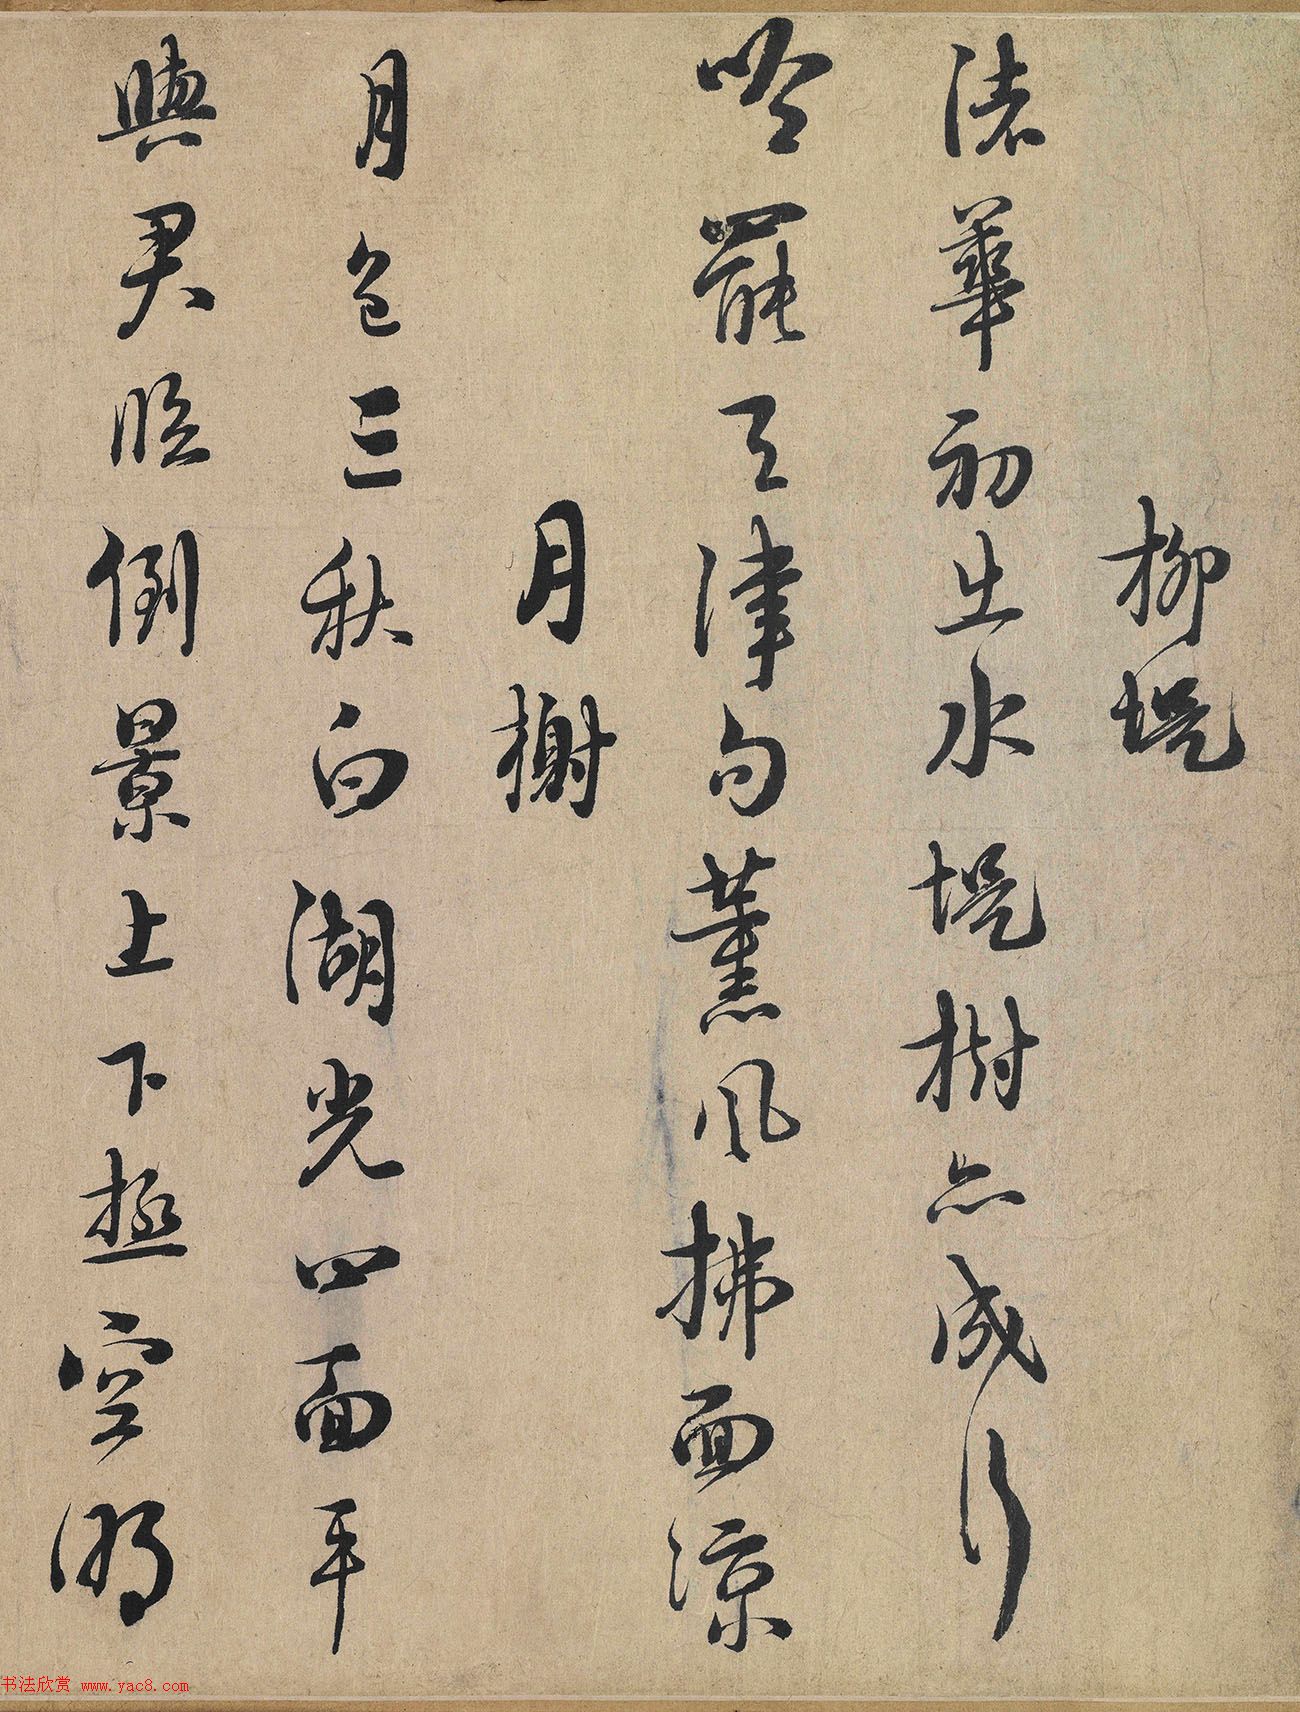 柳堤
渚華初出水堤樹亦成行
吟罷天津句薰風拂面涼
月榭
月色三秋白湖光四面平
與君臨倒景上下極空明
书法欣赏 www.yac8.com